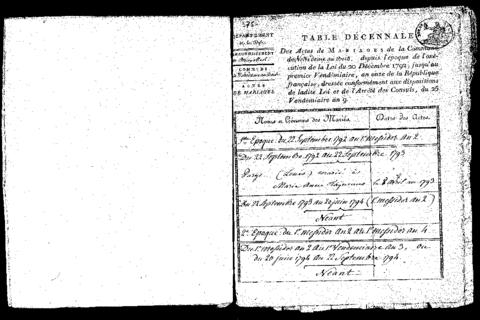 TABLE DÉCENNALE
Des Actes de MARIAGES de la Commune
depuis l'époque de l'exé-
cution de la Loi du 20 Décembre 1792, jusqu'au
premier Vendémiaire, an onze de la République
française, dressée conformément aux dispositions
de ladite Loi et de l'Arrêté des Consuls, du 25
Vendémiaire an 9.
DÉPARTEMENT
COMMUNE
ACTES
DE MARIAGES
Noms et Prénoms des Mariés.
Dates des Actes.
1re Epoque du 22 Septembre 1792 au 1er messidor an 2
Du 22 Septembre 1792 au 22 Septembre 1793
(Louis) marié à
Marie Anne
le 8 avril 1793
Du 22 Septembre 1793 au 20 juin 1794 (1er messidor an 2)
Néant
2e Epoque du 1er messidor an 2 au 1er messidor an 4
Du 1er messidor an 2 au 1er Vendémiaire an 3, ou
du 20 juin 1794 au 22 Septembre 1794
Néant